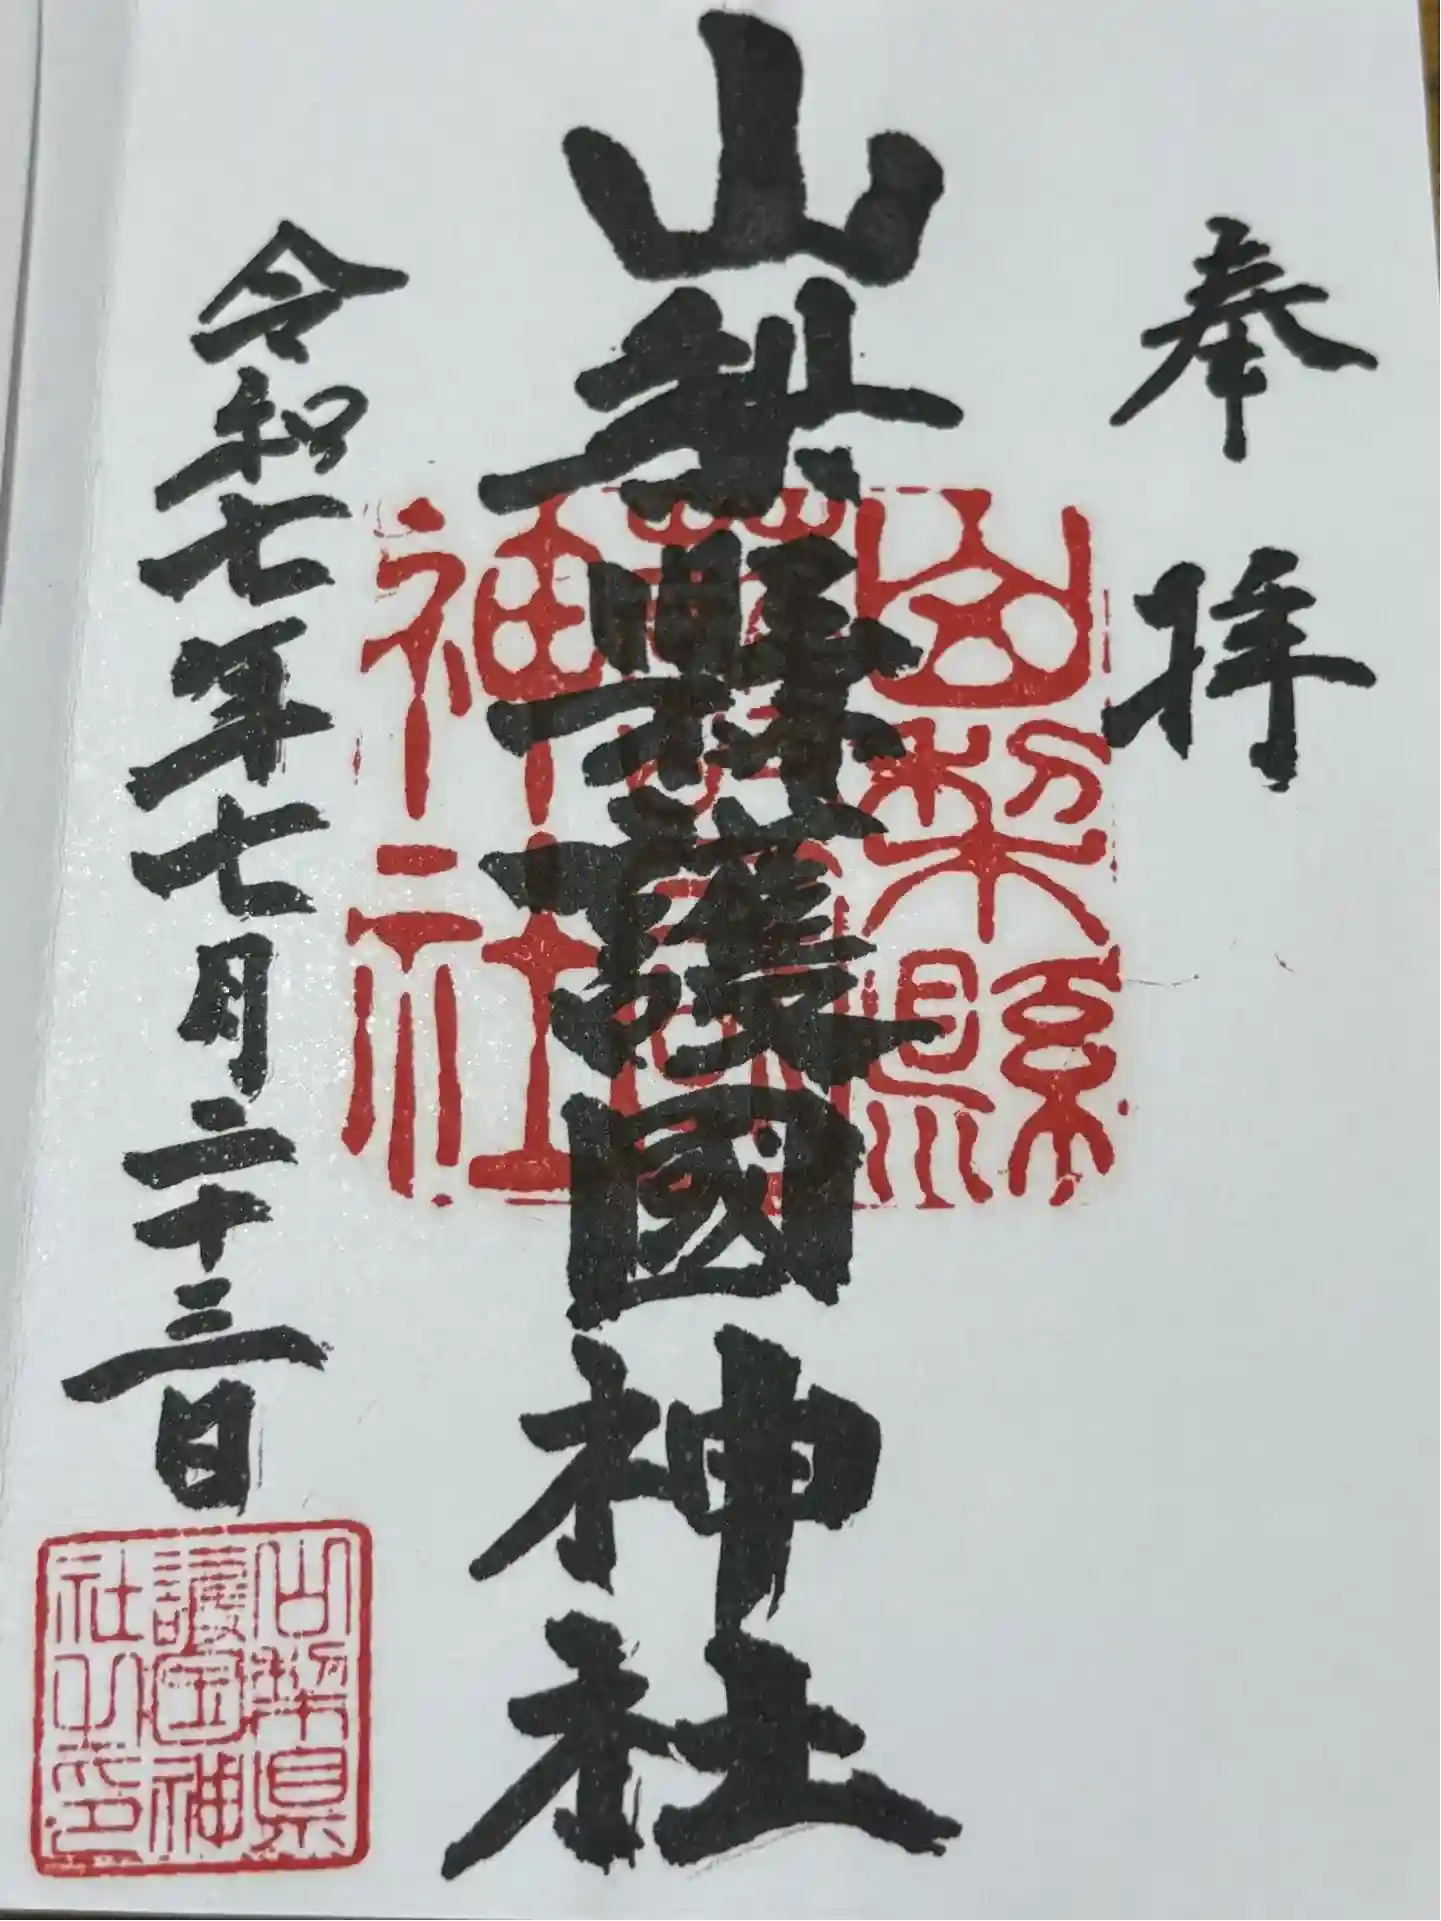 奉拝
山梨縣護國神社
令和七年七月二十三日
山梨縣
神社
山梨県
護国神
社之印